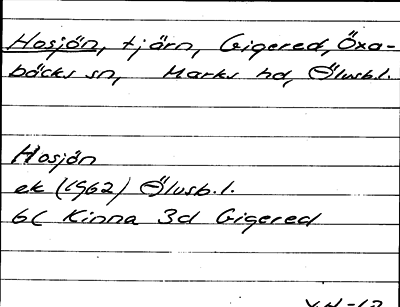 Hosjön, tjärn, Gigered, Öxa-
bäcks sn, Marks hd, Älvsb.l.
Hosjön
ek (1962) Älvsb.l.
6C Kinna 3d Gigered